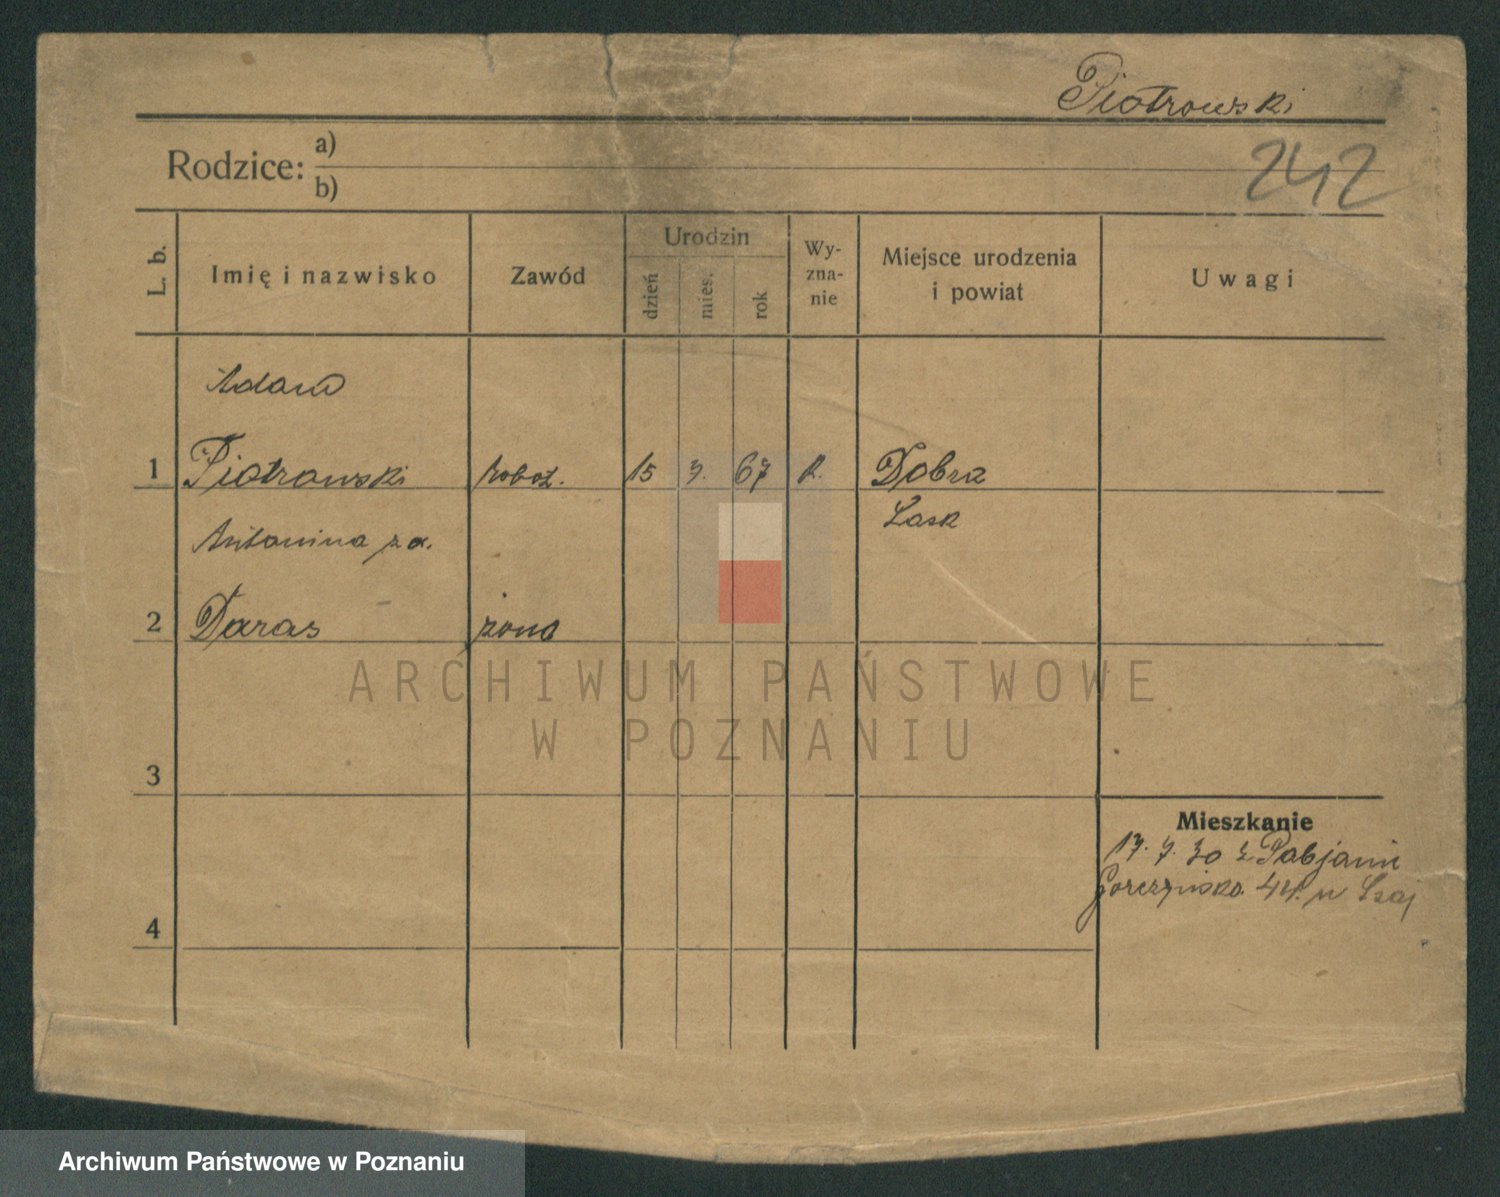 Piotrowski
Rodzice: a)
b)
242
L. b.
Imię i nazwisko
Zawód
Urodzin
dzień
mies.
rok
Wy-
zna-
nie
Miejsce urodzenia
i powiat
Uwagi
Adam
1 Piotrowski robot. 15 7. 67 R. Dobra
Łask
Antonina za.
2 Daras żona
ARCHIWUM PAŃSTWOWE
W POZNANIU
3
Mieszkanie
17. 7. 30 z Pabjanic
44.
4
Archiwum Państwowe w Poznaniu